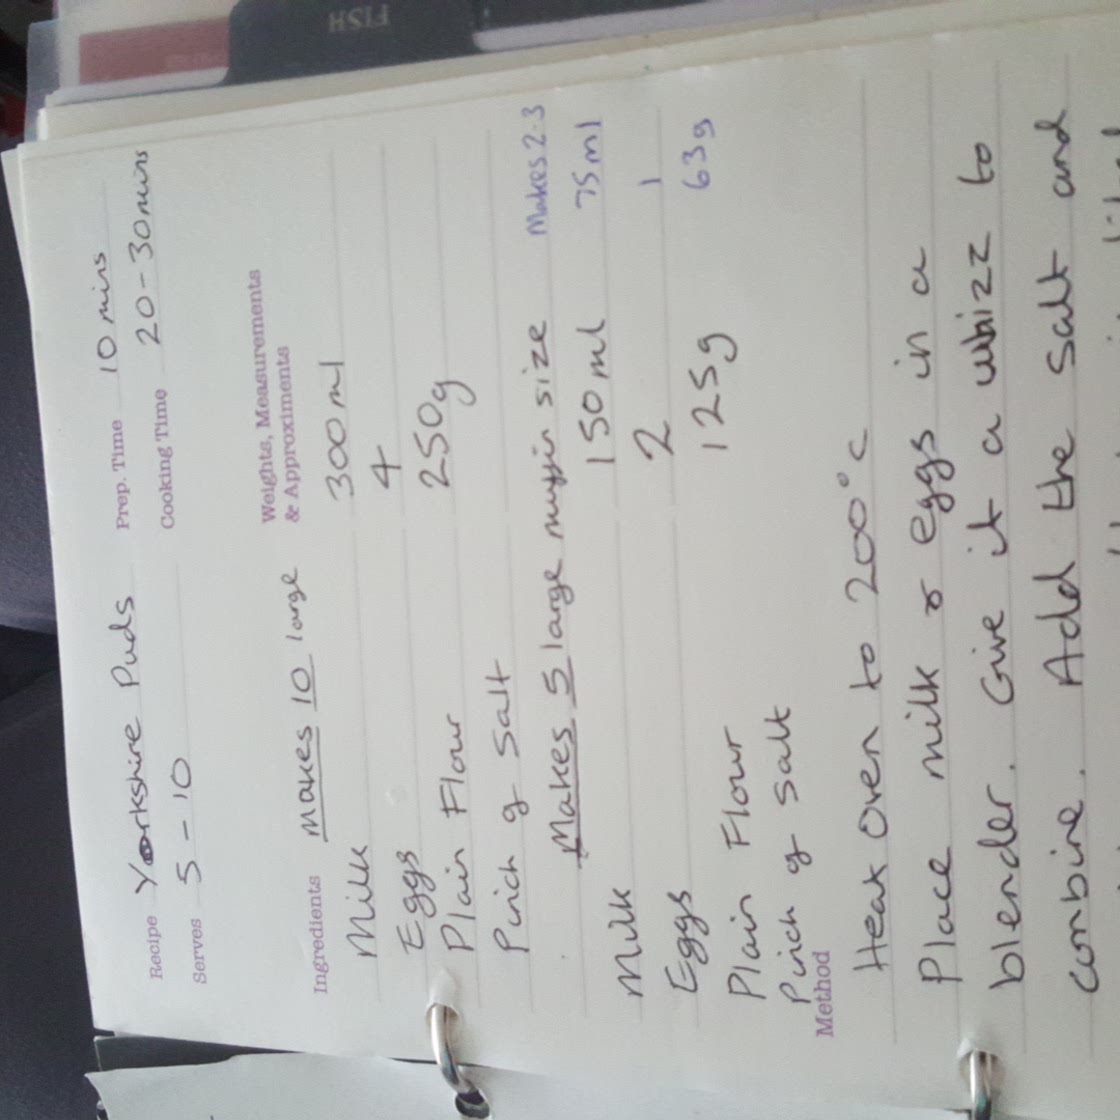 FISH
Recipe Yorkshire Puds Prep. Time 10 mins
Serves 5-10 Cooking Time 20-30mins
Ingredients Makes 10 large Weights, Measurements & Approximents
Milk 300ml
Eggs 4
Plain Flour 250g
Pinch of Salt
Makes 5 large muffin size Makes 2-3
Milk 150ml 75ml
Eggs 2 1
Plain Flour 125g 63g
Pinch of Salt
Method
Heat Oven to 200°C
Place milk & eggs in a
blender. Give it a whizz to
combine. Add the salt and